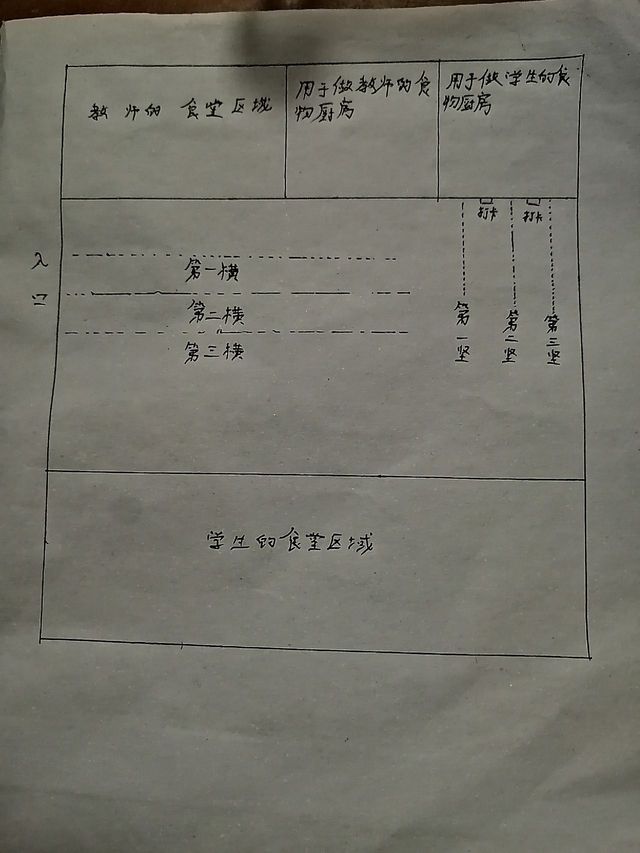 教师的食堂区域
用于做教师的食
物厨房
用于做学生的食
物厨房
打卡
打卡
入口
第一横
第二横
第三横
第一坚
第二坚
第三坚
学生的食堂区域